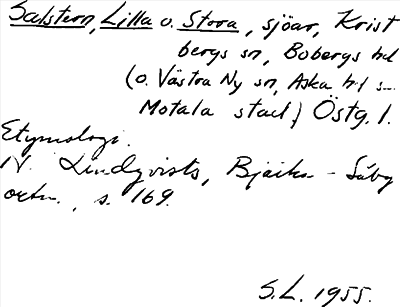 Salstern, Lilla o. Stora, sjöar, Krist
bergs sn, Bobergs hd
(o. Västra Ny sn, Aska hd s...
Motala stad) Östg. l.
Etymologi.
N. Lindqvists, Bjärka-Säby
ortn., s. 169.
S.L. 1955.